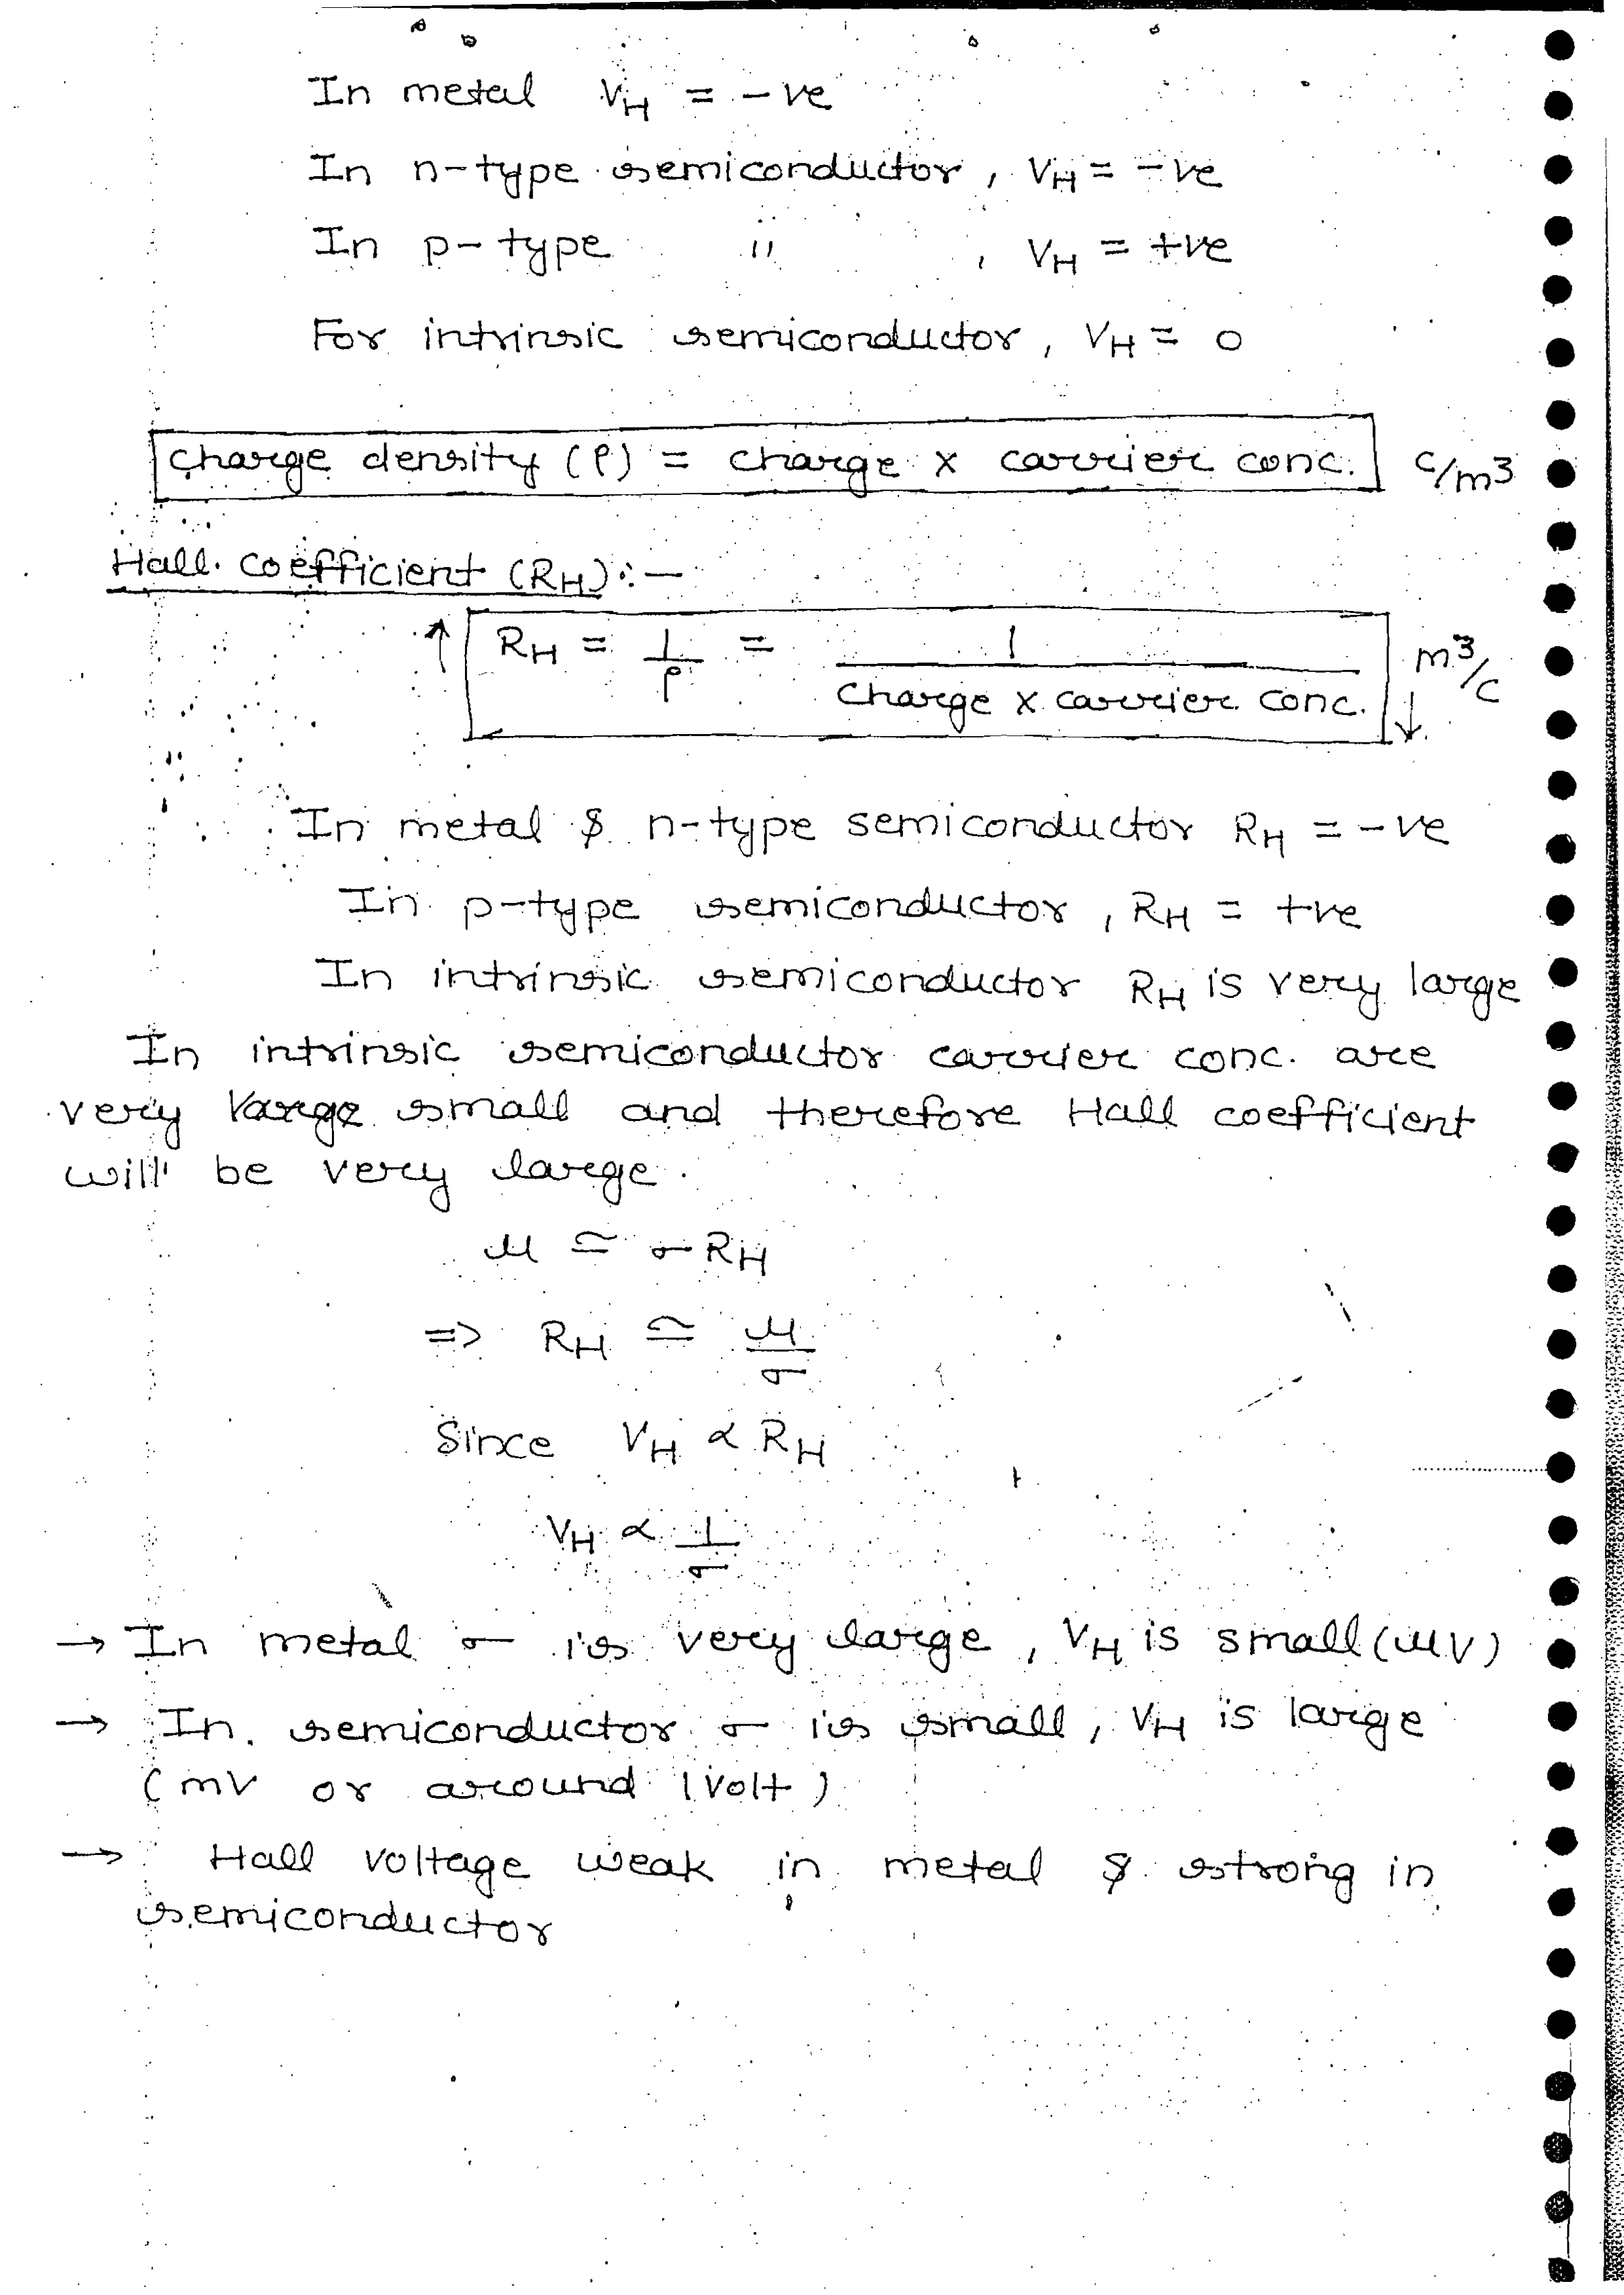 In metal V_H = -ve
In n-type semiconductor, V_H = -ve
In p-type " , V_H = +ve
For intrinsic semiconductor, V_H = 0
Charge density (ρ) = charge × carrier conc. C/m³
Hall Coefficient (R_H):-
↑ R_H = 1/ρ = 1/(Charge × carrier conc.) ↓ m³/C
In metal & n-type semiconductor R_H = -ve
In p-type semiconductor, R_H = +ve
In intrinsic semiconductor R_H is very large
In intrinsic semiconductor carrier conc. are
very large small and therefore Hall coefficient
will be very large.
μ ≅ σR_H
=> R_H ≅ μ/σ
Since V_H ∝ R_H
V_H ∝ 1/σ
→ In metal σ is very large, V_H is small (μV)
→ In semiconductor σ is small, V_H is large
(mV or around 1 Volt)
→ Hall voltage weak in metal & strong in
semiconductor